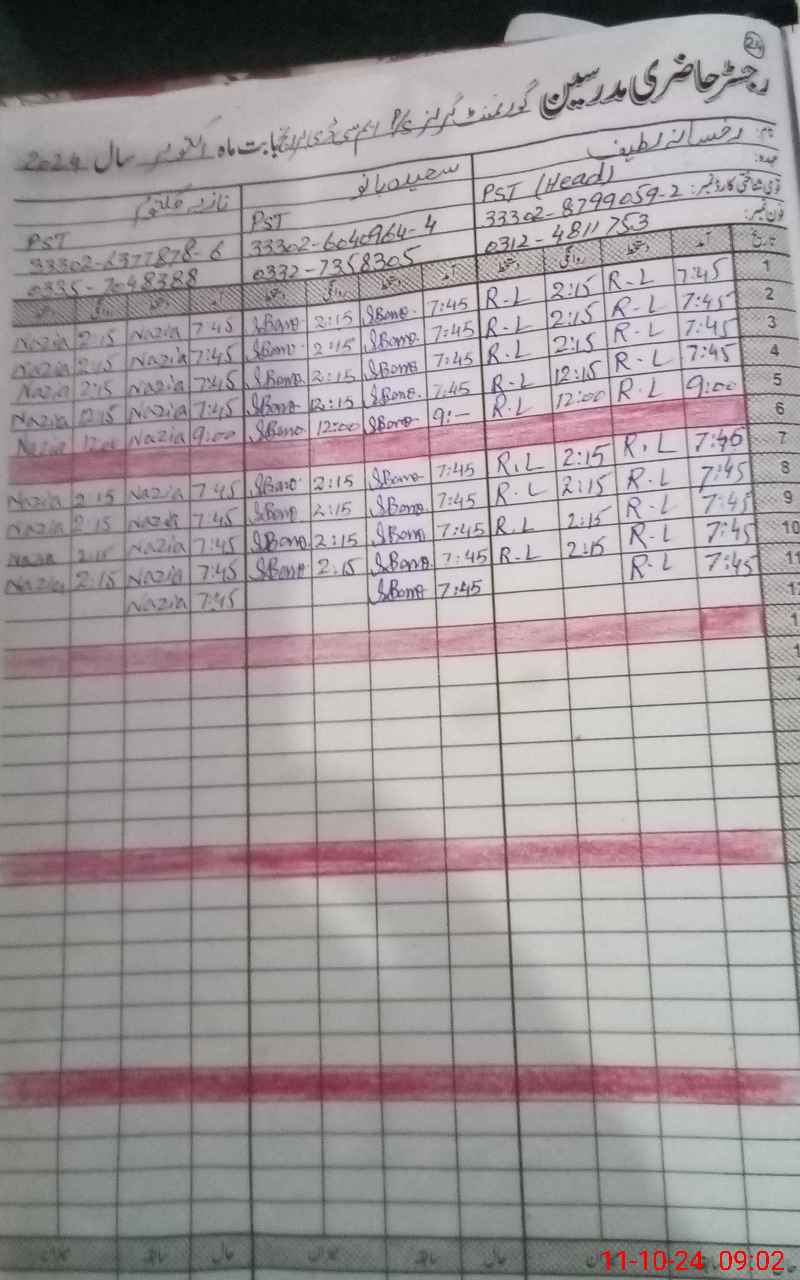 24
رجسٹر حاضری مدرسین گورنمنٹ گرلز بابت ماہ اکتوبر سال 2024
نام: رخسانہ لطیف سعیدہ بانو نازیہ کلثوم
عہدہ: PST (Head) PST PST
قومی شناختی کارڈ نمبر: 33302-8799059-2 33302-6040964-4 33302-6377878-6
فون نمبر: 0312-4811753 0332-7358305 0335-7048388
تاریخ آمد دستخط روانگی دستخط آمد دستخط روانگی دستخط آمد دستخط روانگی دستخط
1 7:45 R-L 2:15 R-L 7:45 SBano 2:15 SBano 7:45 Nazia 2:15 Nazia
2 7:45 R-L 2:15 R-L 7:45 SBano 2:15 SBano 7:45 Nazia 2:15 Nazia
3 7:45 R-L 2:15 R-L 7:45 SBano 2:15 SBano 7:45 Nazia 2:15 Nazia
4 7:45 R-L 12:15 R-L 7:45 SBano 12:15 SBano 7:45 Nazia 12:15 Nazia
5 9:00 R-L 12:00 R-L 9:- SBano 12:00 SBano 9:00 Nazia 12:00 Nazia
6
7 7:45 R.L 2:15 R.L 7:45 SBano 2:15 SBano 7:45 Nazia 2:15 Nazia
8 7:45 R-L 2:15 R-L 7:45 SBano 2:15 SBano 7:45 Nazia 2:15 Nazia
9 7:45 R-L 2:15 R.L 7:45 SBano 2:15 SBano 7:45 Nazia 2:15 Nazia
10 7:45 R-L 2:15 R-L 7:45 SBano 2:15 SBano 7:45 Nazia 2:15 Nazia
11 7:45 R-L 7:45 SBano 7:45 Nazia
12
حال سابقہ میزان حال سابقہ
11-10-24 09:02